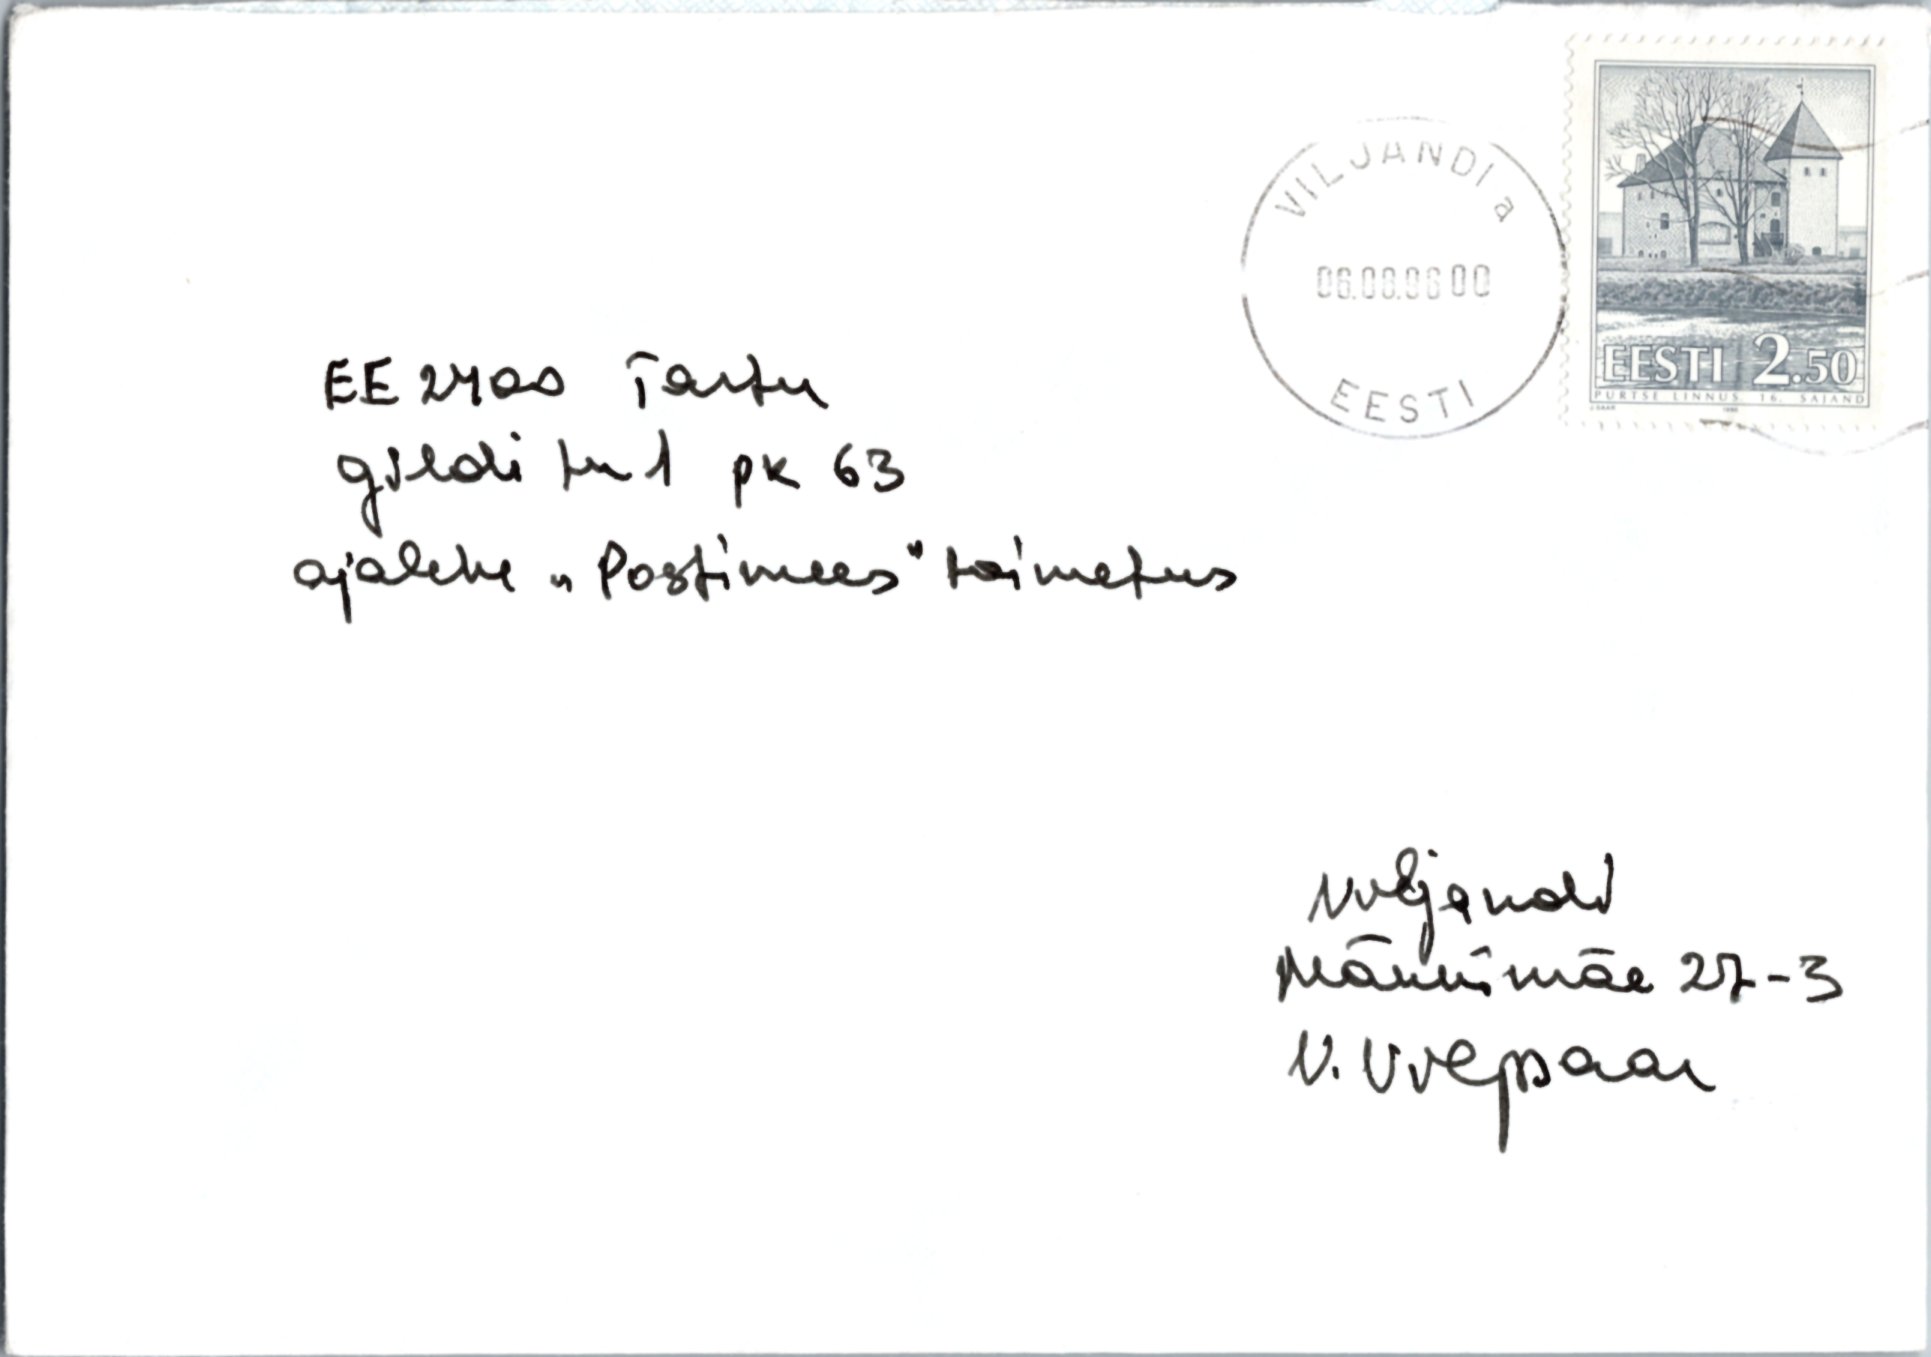 VILJANDI a
06.08.96 00
EESTI
EESTI 2.50
PURTSE LINNUS. 16. SAJAND
EE 2400 Tartu
gildi tn 1 pk 63
ajalehe „Postimees" toimetus
Viljandi
Männimäe 27-3
V.